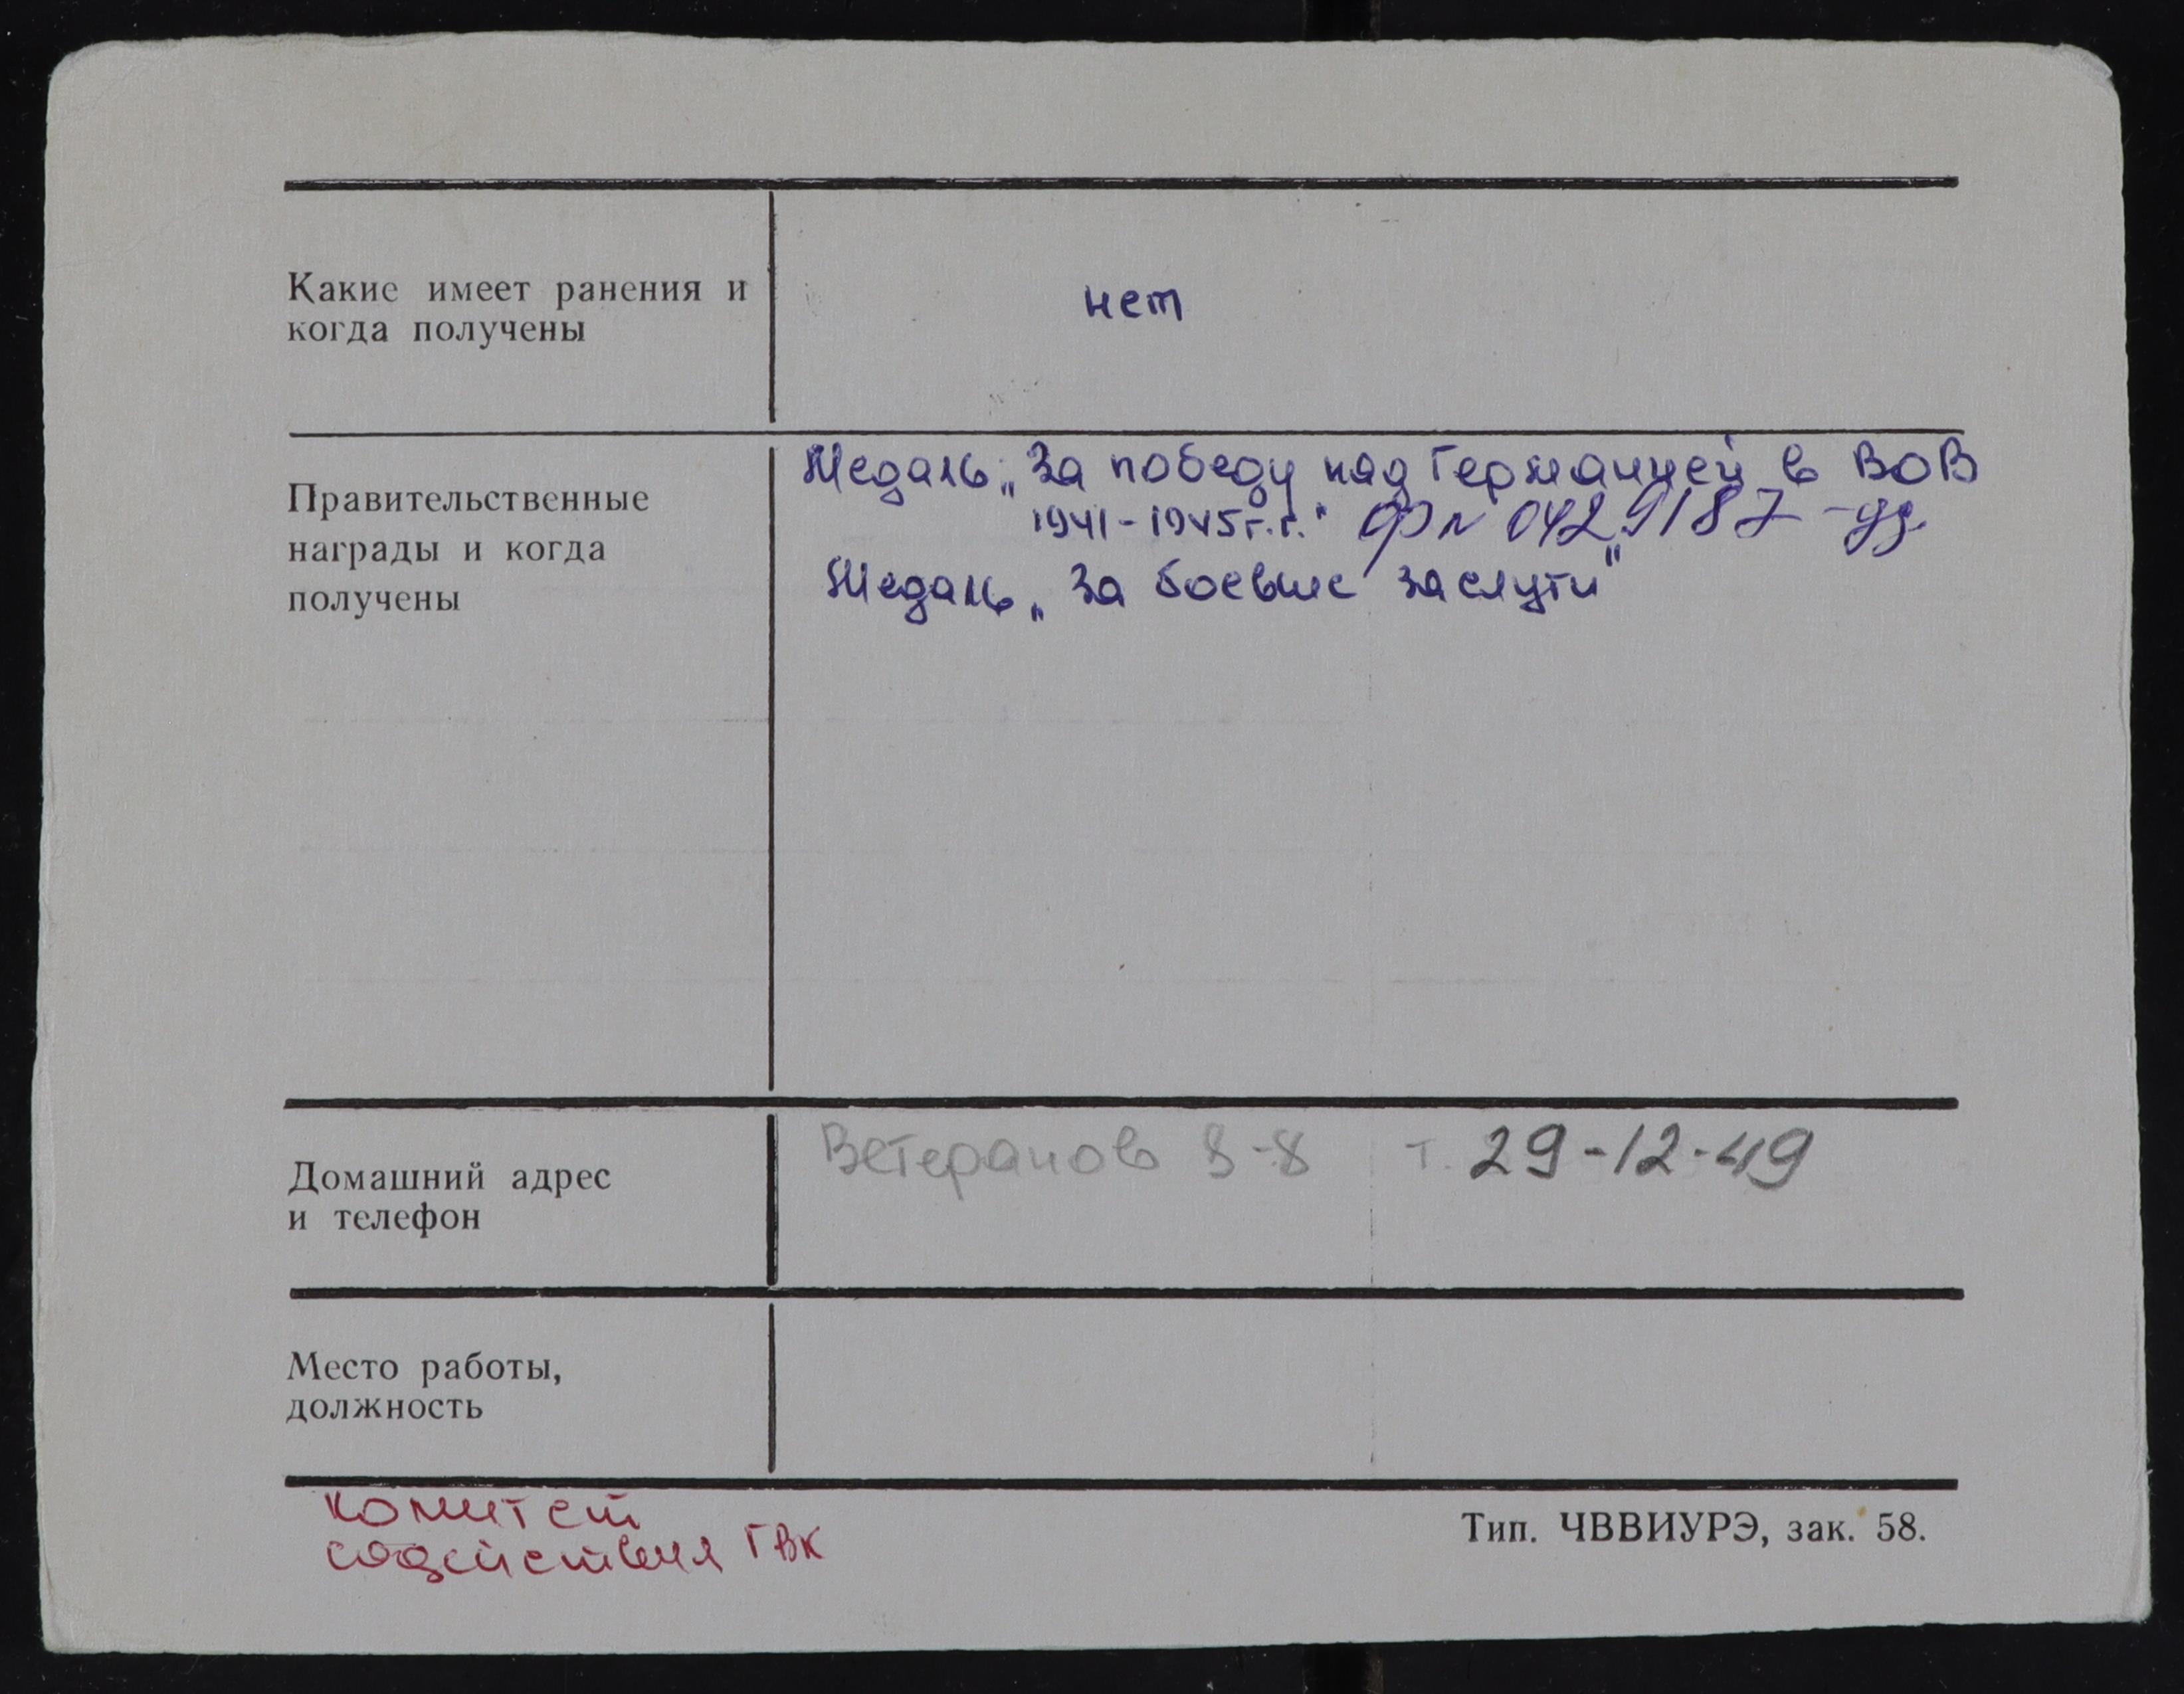 Какие имеет ранения и
когда получены
нет
Правительственные
награды и когда
получены
Медаль „За победу над Германией в ВОВ
1941-1945г.г." ФN 0429187 -
Медаль „За боевые заслуги"
Домашний адрес
и телефон
Ветеранов 8-8 т. 29-12-49
Место работы,
должность
комитет
содействия ГВК
Тип. ЧВВИУРЭ, зак. 58.